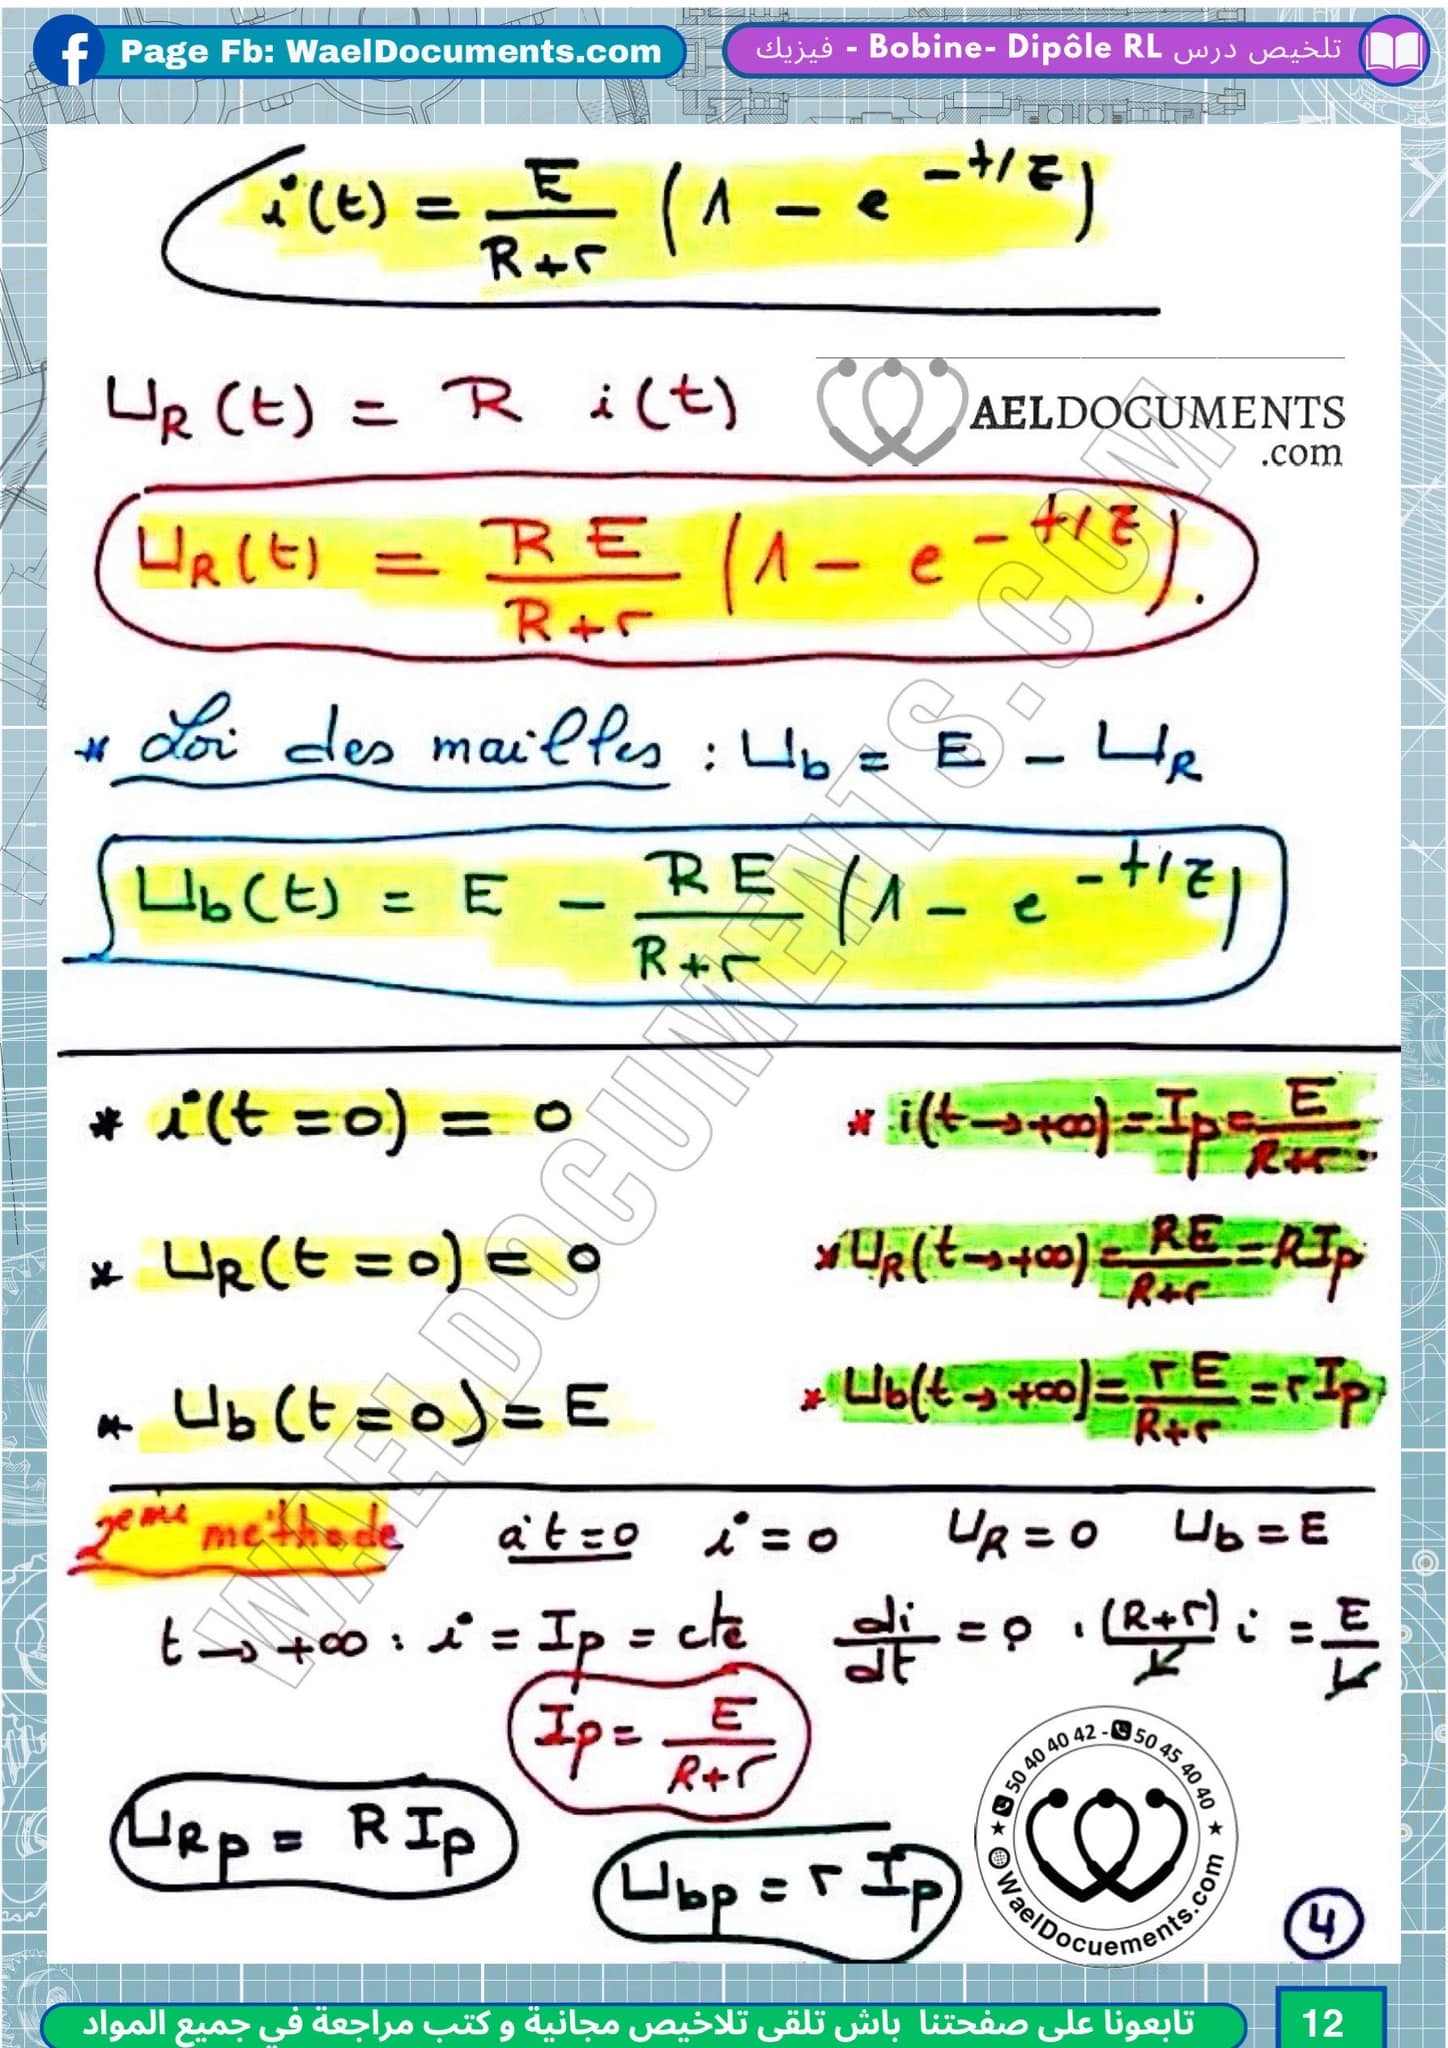 Page Fb: WaelDocuments.com
تلخيص درس Bobine- Dipôle RL - فيزيك
i(t) = E/(R+r) (1 - e^(-t/τ))
U_R(t) = R i(t)
WAELDOCUMENTS
.com
U_R(t) = RE/(R+r) (1 - e^(-t/τ)).
* Loi des mailles : U_b = E - U_R
U_b(t) = E - RE/(R+r) (1 - e^(-t/τ))
* i(t=0) = 0
* i(t→+∞) = Ip = E/(R+r)
* U_R(t=0) = 0
* U_R(t→+∞) = RE/(R+r) = RIp
* U_b(t=0) = E
* U_b(t→+∞) = rE/(R+r) = rIp
2eme méthode à t=0 i=0 U_R=0 U_b=E
t→+∞ : i = Ip = cte di/dt = 0 . (R+r)/L i = E/L
Ip = E/(R+r)
U_Rp = R Ip
U_bp = r Ip
50 40 40 42 - 50 45 40 40
WaelDocuements.com
4
WAELDOCUMENTS.COM
تابعونا على صفحتنا باش تلقى تلاخيص مجانية و كتب مراجعة في جميع المواد
12